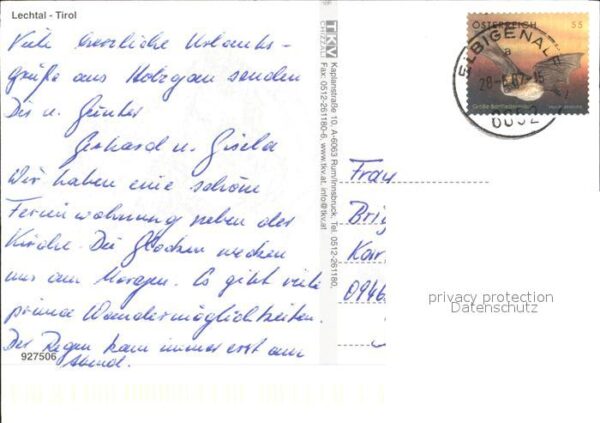 Lechtal - Tirol
Viele herzliche Urlaubs-
grüße aus Holzgau senden
Dir u. Günter
Gerhard u. Gisela
Wir haben eine schöne
Ferienwohnung neben der
Kirche. Die Glocken wecken
uns am Morgen. Es gibt viele
prima Wandermöglichkeiten.
Der Regen kam immer erst am
Abend.
927506
TKV
Kaplanstraße 10, A-6063 Rum/Innsbruck, Tel. 0512-261180,
Fax: 0512-261180-6, www.tkv.at, info@tkv.at
ÖSTERREICH 55
ELBIGENALP
a
6652
Frau
Brig
Kar
0946
privacy protection
Datenschutz